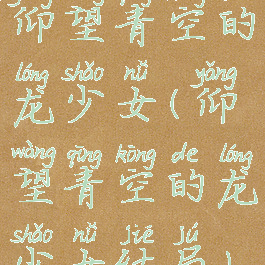 仰望青空的
lóng shǎo nǚ yǎng
龙少女(仰
wàng qīng kōng de lóng
望青空的龙
shǎo nǚ jié jú
少女结局)